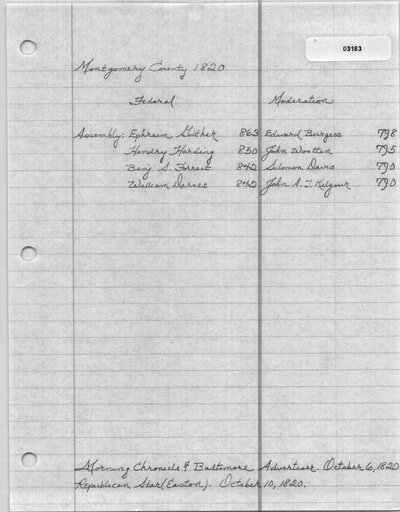 03183
Montgomery County 1820
Federal Moderation
Assembly: Ephraim Gaither 863 Edward Burgess 798
Henry Harding 850 John Wootten 795
Benj. S. Forrest 842 Solomon Davis 790
William Darnes 842 John A. T. Kilgour 790
Morning Chronicle & Baltimore Advertiser. October 6, 1820
Republican Star (Easton). October 10, 1820.